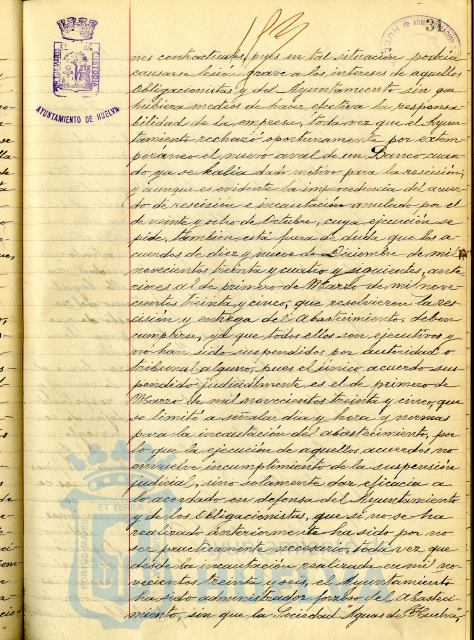 AYUNTAMIENTO DE HUELVA
34
nes contractuales, pues en tal situación podría
causarse lesión grave a los intereses de aquellos
Obligacionistas y del Ayuntamiento sin que
hubiera medios de hacer efectiva la responsa-
bilidad de la empresa, toda vez que el Ayun-
tamiento rechazó oportunamente por extem-
poraneo el nuevo aval de un Banco cuan-
do ya se había dado motivo para la rescisión;
y aunque es evidente la improcedencia del acuer-
do de rescisión e incautación anulado por el
de veinte y ocho de Octubre, cuya ejecución se
pide, tambien está fuera de duda que los a-
cuerdos de diez y nueve de Diciembre de mil
novecientos treinta y cuatro y siguientes, ante-
riores al de primero de Marzo de mil nove-
cientos treinta y cinco, que resolvieron la res-
cisión y entrega del Abastecimiento, deben
cumplirse, ya que todos ellos son ejecutivos y
no han sido suspendidos por autoridad o
tribunal alguno, pues el único acuerdo sus-
pendido judicialmente es el de primero de
Marzo de mil novecientos treinta y cinco, que
se limitó a señalar dia y hora y normas
para la incautación del abastecimiento, por
lo que la ejecución de aquellos acuerdos no
envuelve incumplimiento de la suspensión
judicial, sino solamente dar eficacia a
lo acordado en defensa del Ayuntamiento
y de los Obligacionistas, que si no se ha
realizado anteriormente ha sido por no
ser practicamente necesario, toda vez que
desde la incautación realizada en mil no-
vecientos treinta y seis, el Ayuntamiento
ha sido administrador forzoso del Abasteci-
miento, sin que la Sociedad "Aguas de Huelva",